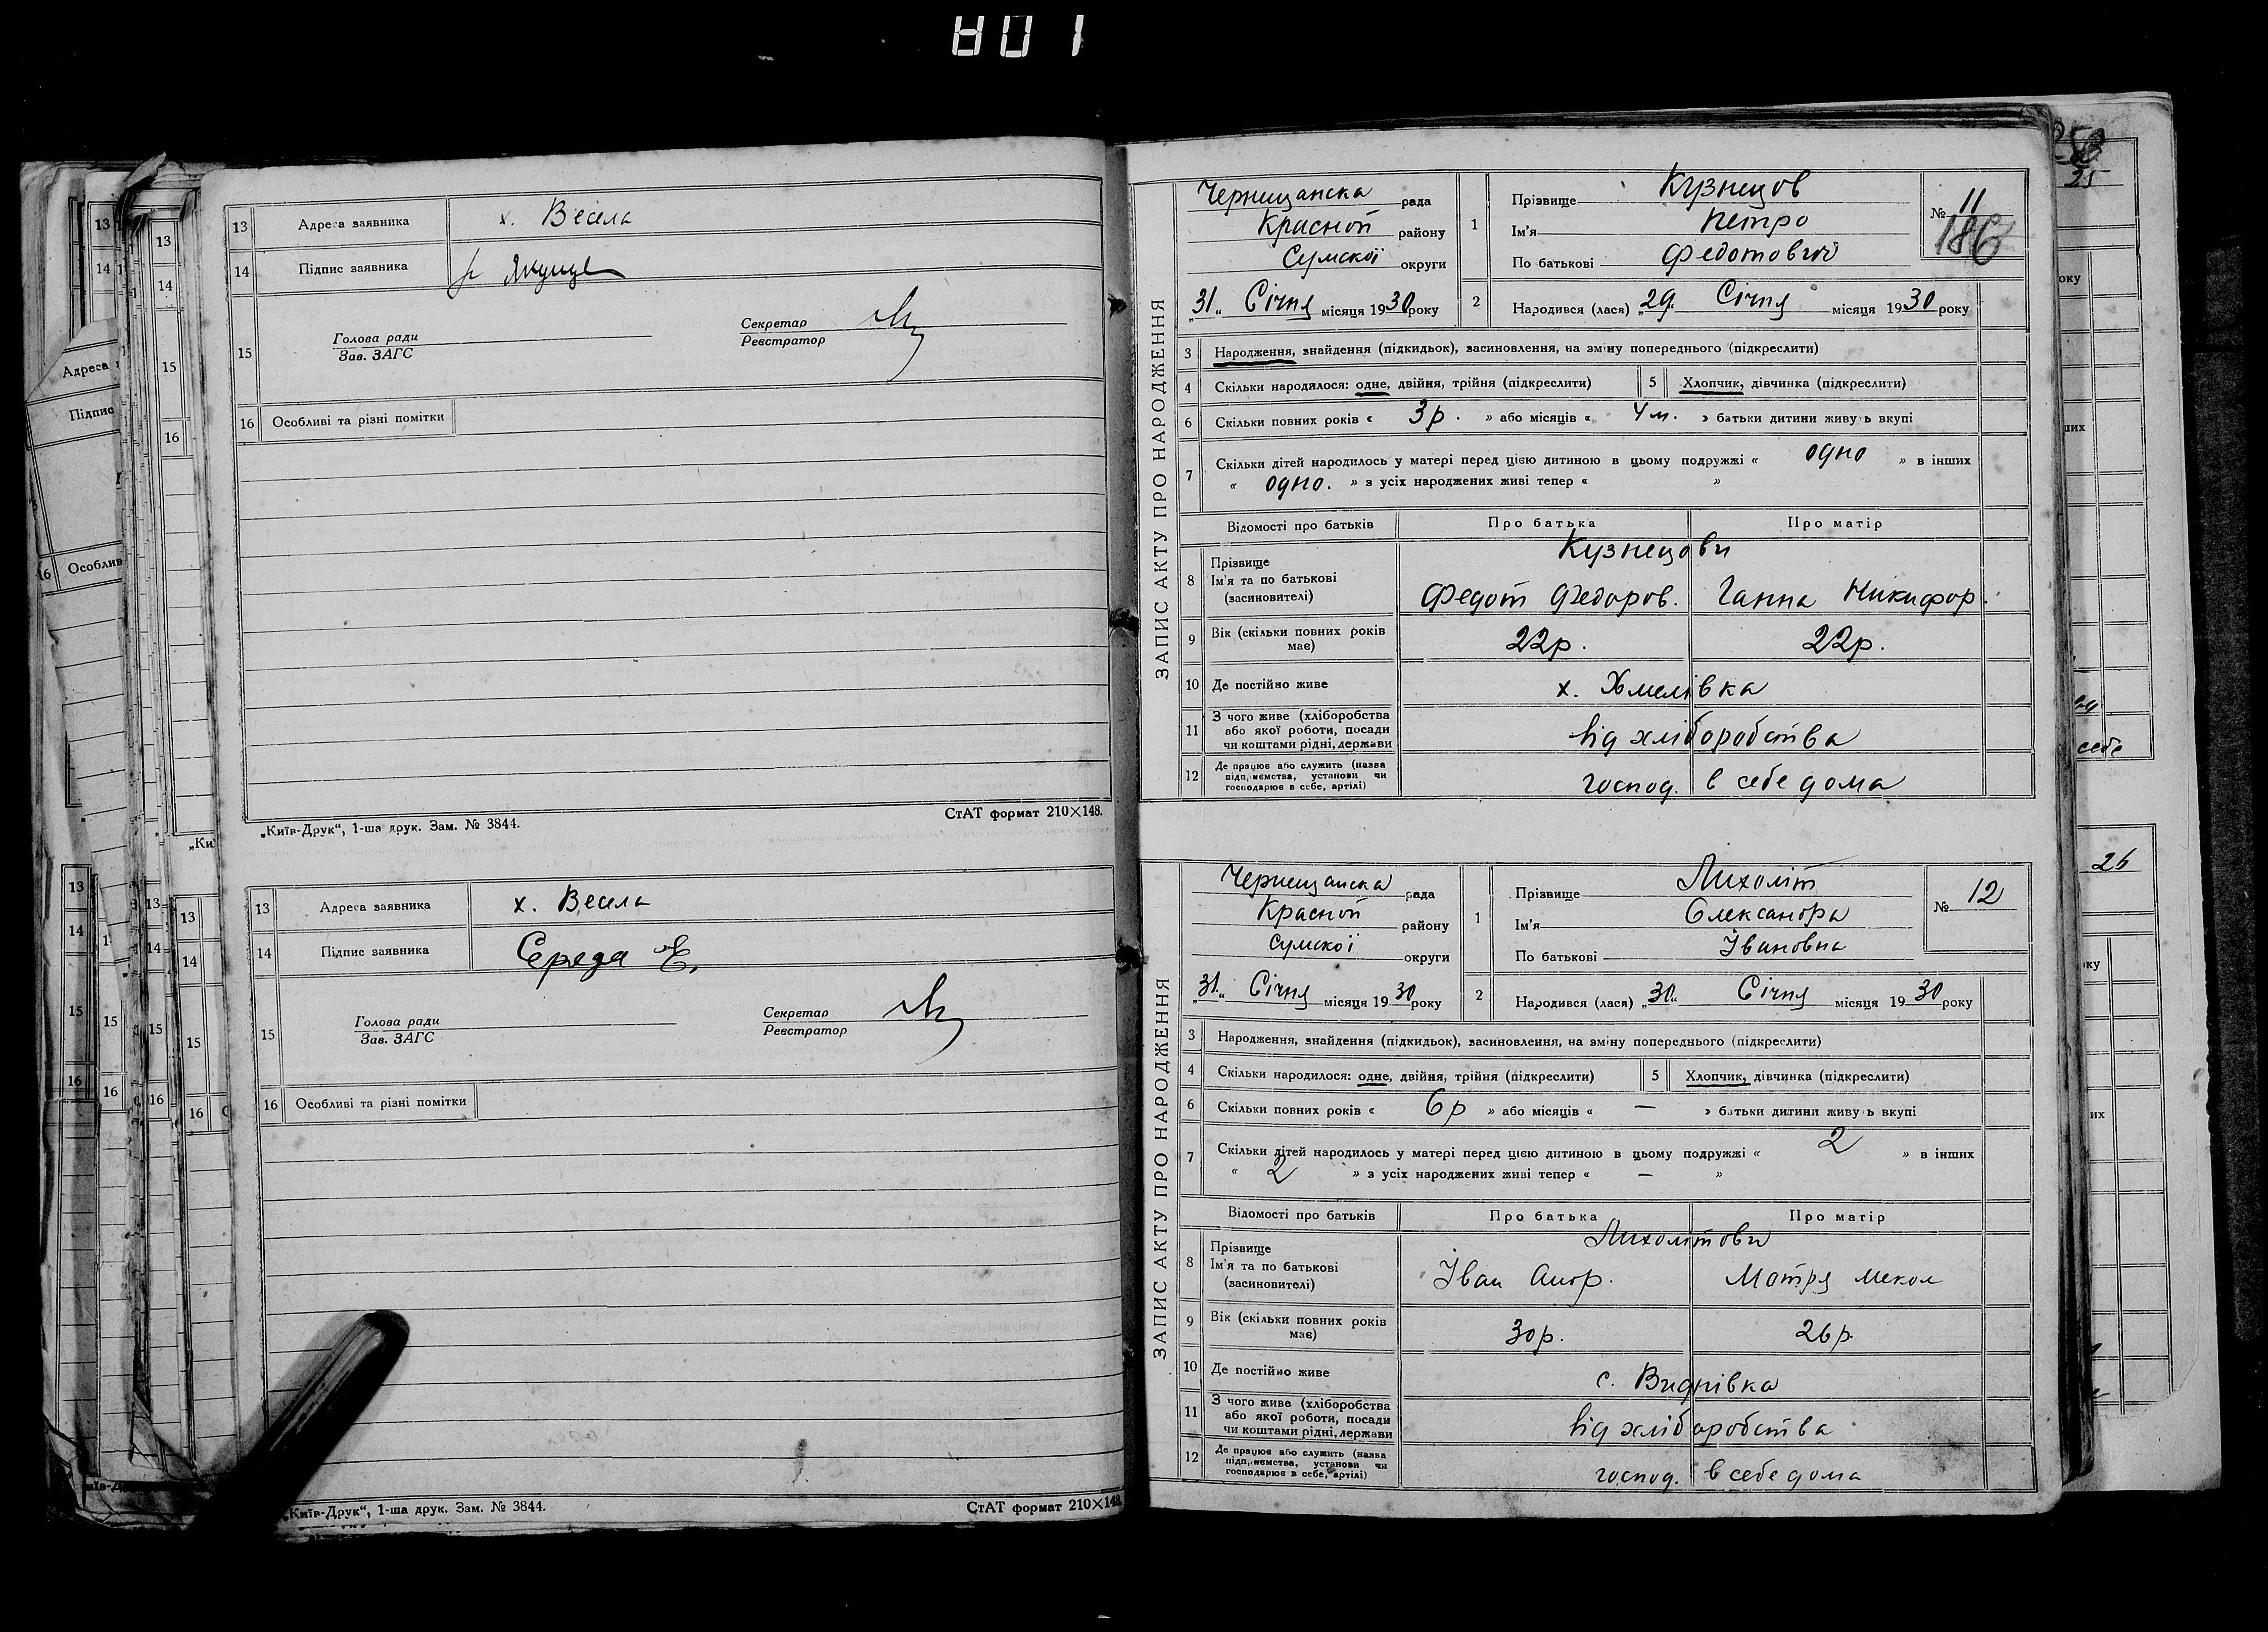 801
13 Адреса заявника х. Весела
14 Підпис заявника
15 Голова ради Секретар
Зав. ЗАГС Реєстратор
16 Особливі та різні помітки
„Київ-Друк“, 1-ша друк. Зам. № 3844. СтАТ формат 210×148.
13 Адреса заявника х. Весела
14 Підпис заявника Середа Є.
15 Голова ради Секретар
Зав. ЗАГС Реєстратор
16 Особливі та різні помітки
„Київ-Друк“, 1-ша друк. Зам. № 3844. СтАТ формат 210×148.
ЗАПИС АКТУ ПРО НАРОДЖЕННЯ
Чернещанска рада
Красноп району
Сумскої округи
„31“ Січня місяця 1930 року
1 Прізвище Кузнецов
Ім'я Петро
По батькові Федотовий
№ 11
186
2 Народився (лася) „29“ Січня місяця 1930 року
3 Народження, знайдення (підкидьок), засиновлення, на зміну попереднього (підкреслити)
4 Скільки народилося: одне, двійня, трійня (підкреслити) 5 Хлопчик, дівчинка (підкреслити)
6 Скільки повних років « 3р. » або місяців « 4 м. » батьки дитини живуть вкупі
7 Скільки дітей народилось у матері перед цією дитиною в цьому подружжі « одно » в інших
« одно. » з усіх народжених живі тепер « »
Відомості про батьків Про батька Про матір
8 Прізвище Кузнецови
Ім'я та по батькові
(засиновителі) Федот Федоров. Ганна Никифор.
9 Вік (скільки повних років має) 22р. 22р.
10 Де постійно живе х. Хмелівка
11 З чого живе (хліборобства
або якої роботи, посади
чи коштами рідні, держави від хліборобства
12 Де працює або служить (назва
підприємства, установи чи
господарює в себе, артілі) господ. в себе дома
ЗАПИС АКТУ ПРО НАРОДЖЕННЯ
Чернещанска рада
Красноп району
Сумскої округи
„31“ Січня місяця 1930 року
1 Прізвище Лихоліт
Ім'я Олександра
По батькові Івановна
№ 12
2 Народився (лася) „30“ Січня місяця 1930 року
3 Народження, знайдення (підкидьок), засиновлення, на зміну попереднього (підкреслити)
4 Скільки народилося: одне, двійня, трійня (підкреслити) 5 Хлопчик, дівчинка (підкреслити)
6 Скільки повних років « 6р » або місяців « — » батьки дитини живуть вкупі
7 Скільки дітей народилось у матері перед цією дитиною в цьому подружжі « 2 » в інших
« 2 » з усіх народжених живі тепер « — »
Відомості про батьків Про батька Про матір
8 Прізвище Лихолітови
Ім'я та по батькові
(засиновителі) Іван Андр. Мотря Микол
9 Вік (скільки повних років має) 30р. 26р.
10 Де постійно живе с. Виднівка
11 З чого живе (хліборобства
або якої роботи, посади
чи коштами рідні, держави від хліборобства
12 Де працює або служить (назва
підприємства, установи чи
господарює в себе, артілі) господ. в себе дома